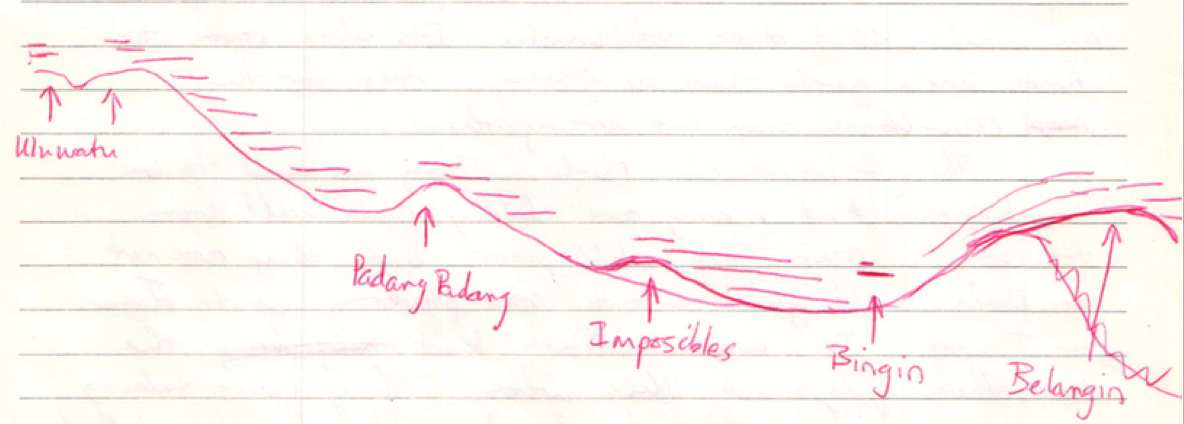 Uluwatu
Padang Padang
Imposibles
Bingin
Belangin